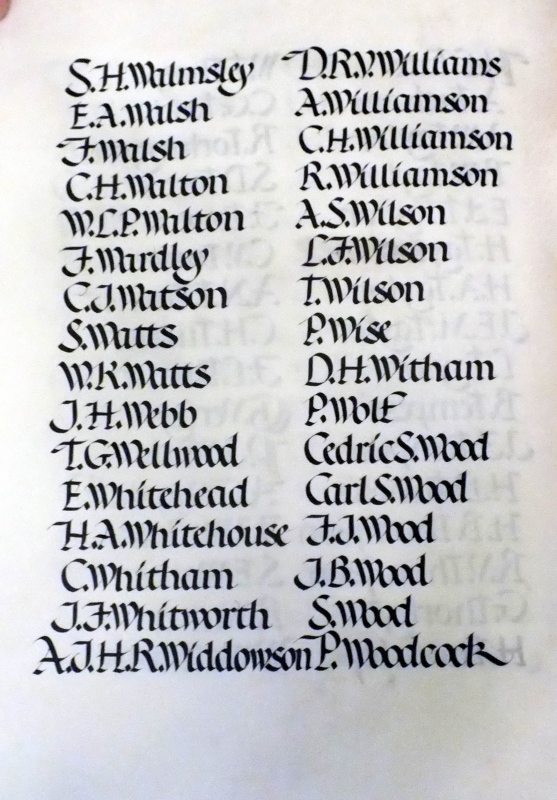 S.H.Walmsley
E.A.Walsh
F.Walsh
C.H.Walton
W.L.P.Walton
F.Wardley
C.J.Watson
S.Watts
W.K.Watts
J.H.Webb
T.G.Wellwood
E.Whitehead
H.A.Whitehouse
C.Whitham
J.F.Whitworth
A.J.H.R.Widdowson
D.R.V.Williams
A.Williamson
C.H.Williamson
R.Williamson
A.S.Wilson
L.F.Wilson
T.Wilson
P.Wise
D.H.Witham
P.Wolf
Cedric S.Wood
Carl S.Wood
F.J.Wood
J.B.Wood
S.Wood
P.Woodcock